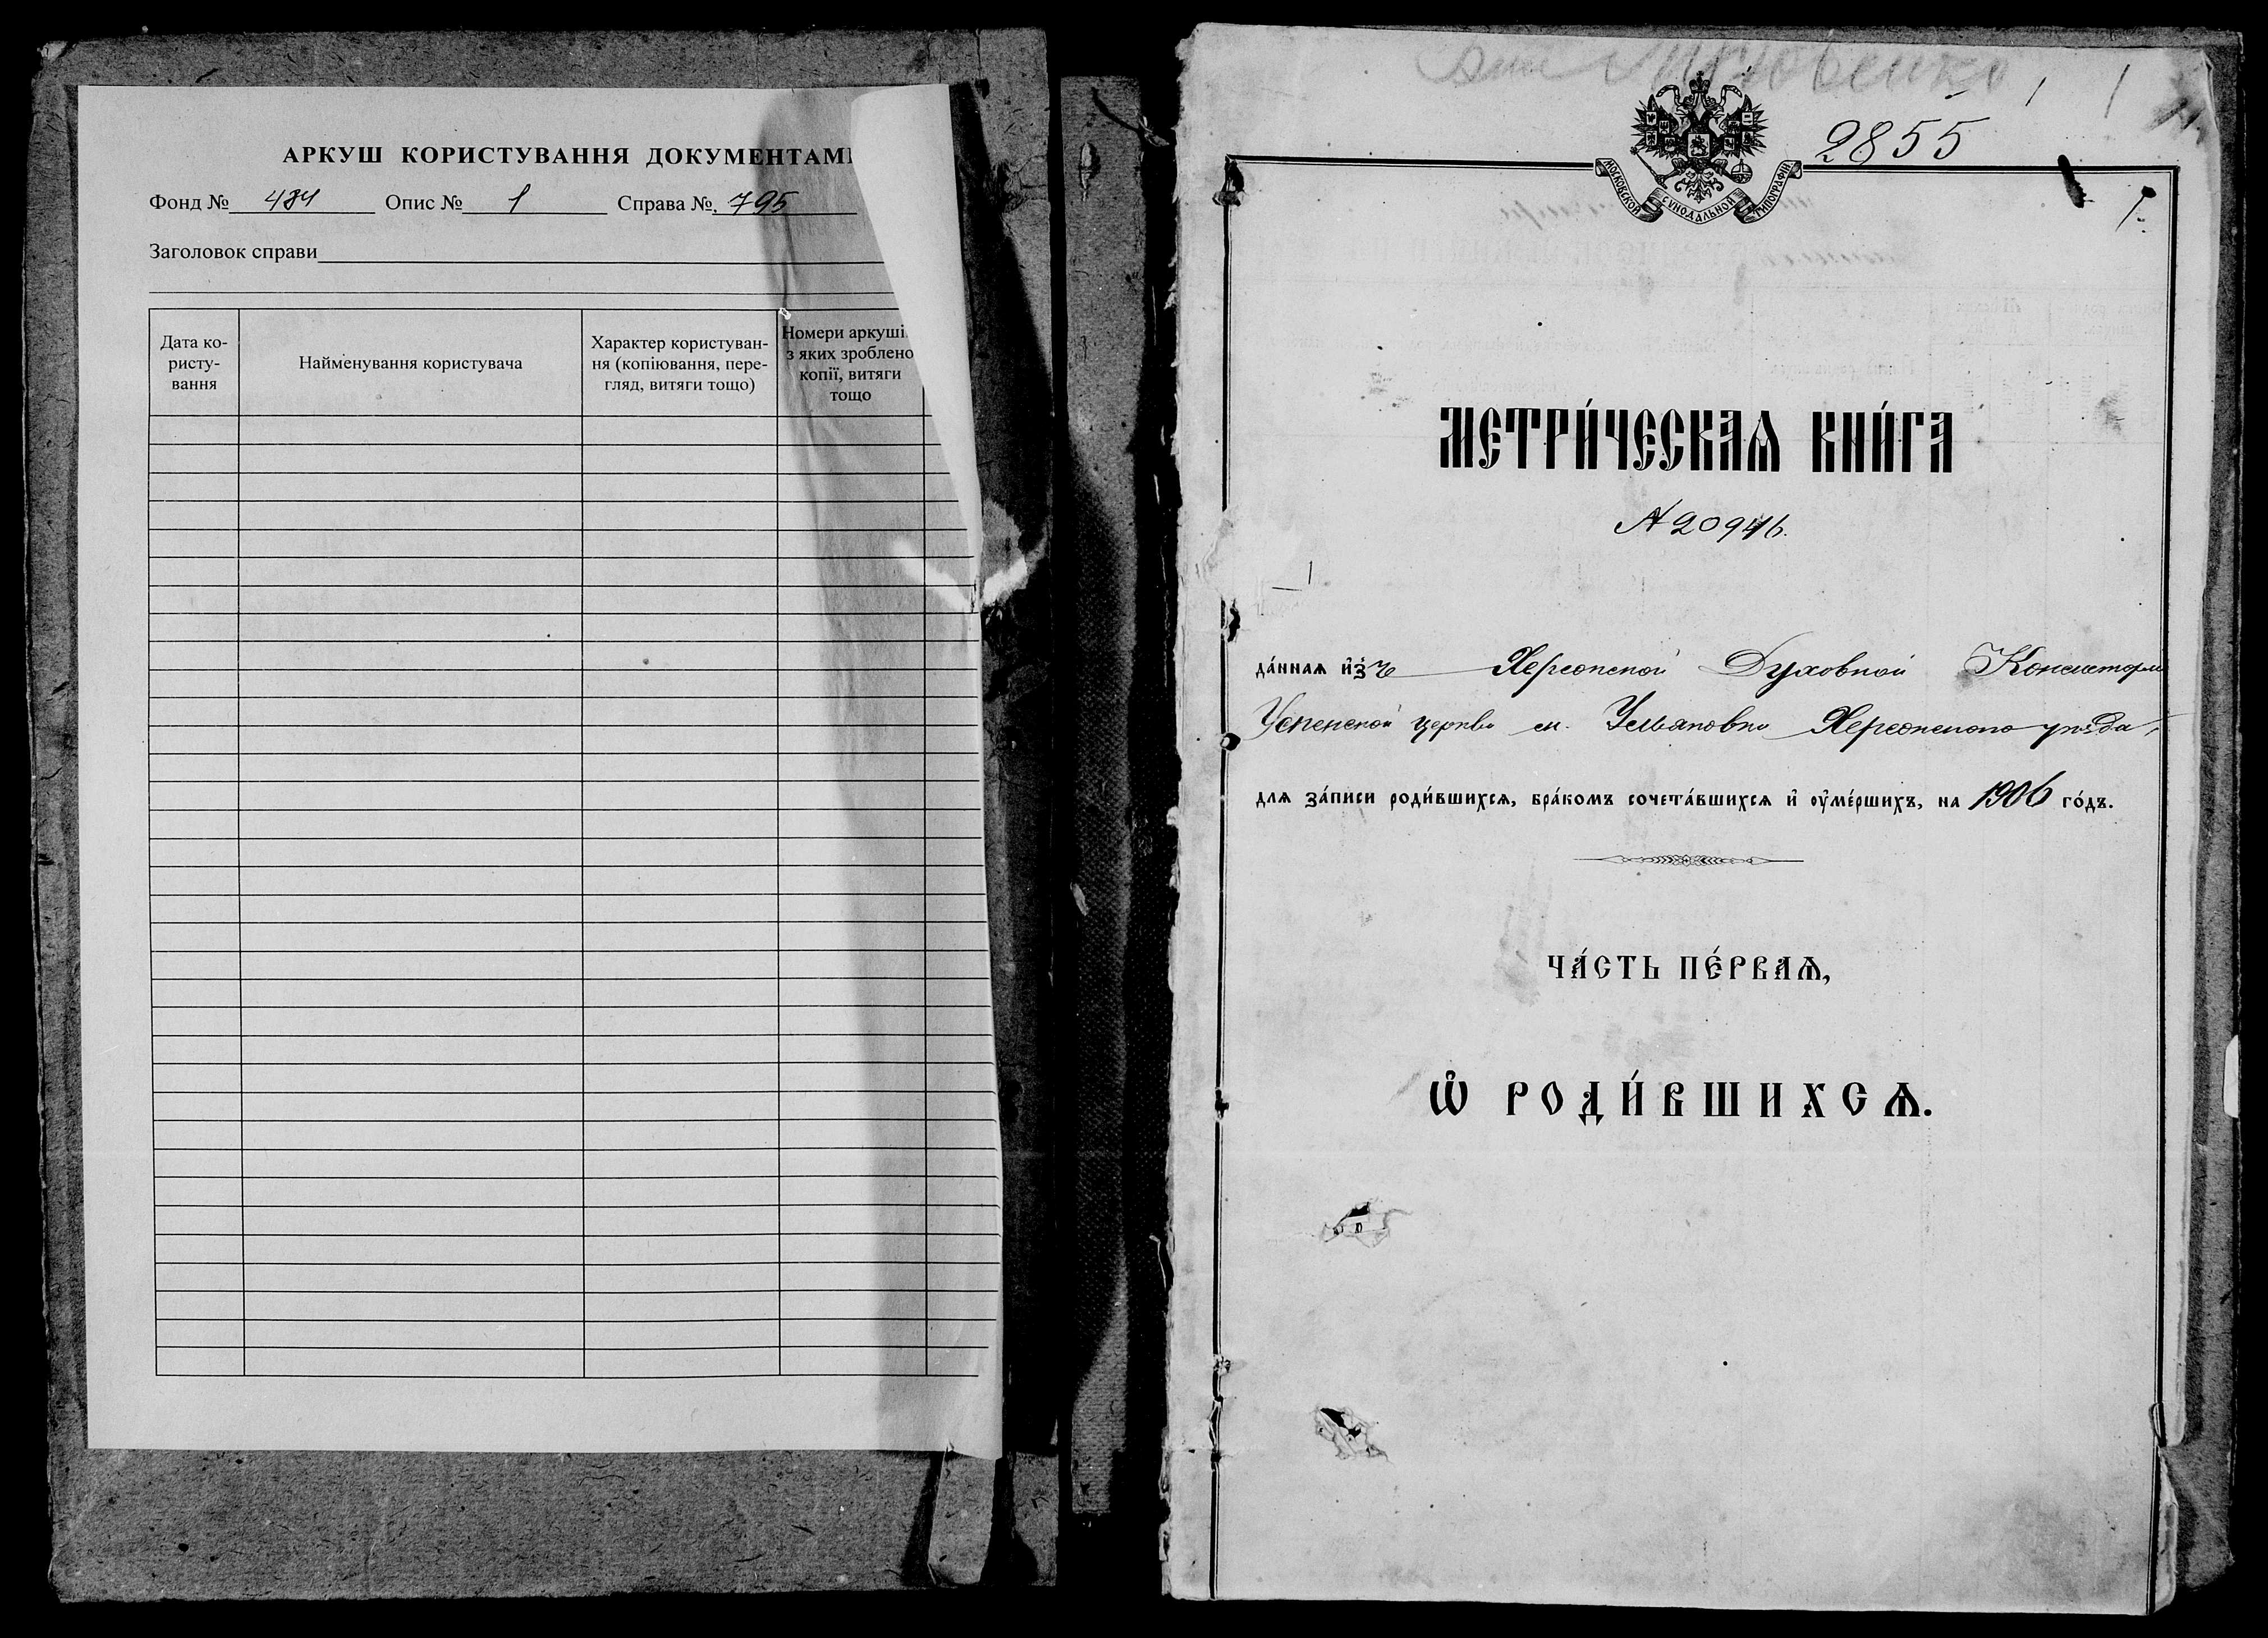 АРКУШ КОРИСТУВАННЯ ДОКУМЕНТАМИ
Фонд № 484 Опис № 1 Справа № 795
Заголовок справи
Дата ко-
ристу-
вання
Найменування користувача
Характер користуван-
ня (копіювання, пере-
гляд, витяги тощо)
Номери аркуші
з яких зроблено
копії, витяги
тощо
2855
МОСКОВСКОЙ СѴНОДАЛЬНОЙ ТИПОГРАФІИ
МЕТРИ́ЧЕСКАѦ КНИ́ГА
№ 20946.
да́ннаѧ и҆зъ Херсонской Духовной Консисторіи
Успенской церкви Херсонскаго уѣзда,
длѧ за́писи роди́вшихсѧ, бра́комъ сочета́вшихсѧ и҆ ᲂу҆ме́ршихъ, на 1906 го́дъ.
ЧА́СТЬ ПЕ́РВАѦ,
Ѡ҆ РОДИ́ВШИХСѦ.